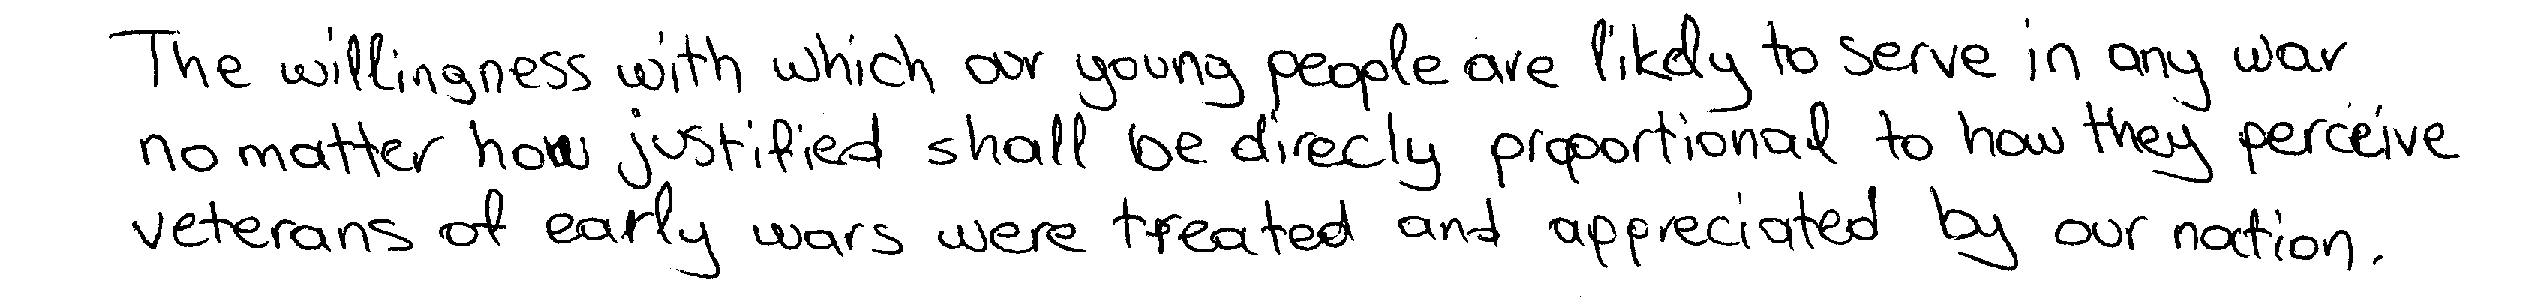 The willingness with which our young people are likely to serve in any war
no matter how justified shall be direcly proportional to how they perceive
veterans of early wars were treated and appreciated by our nation.